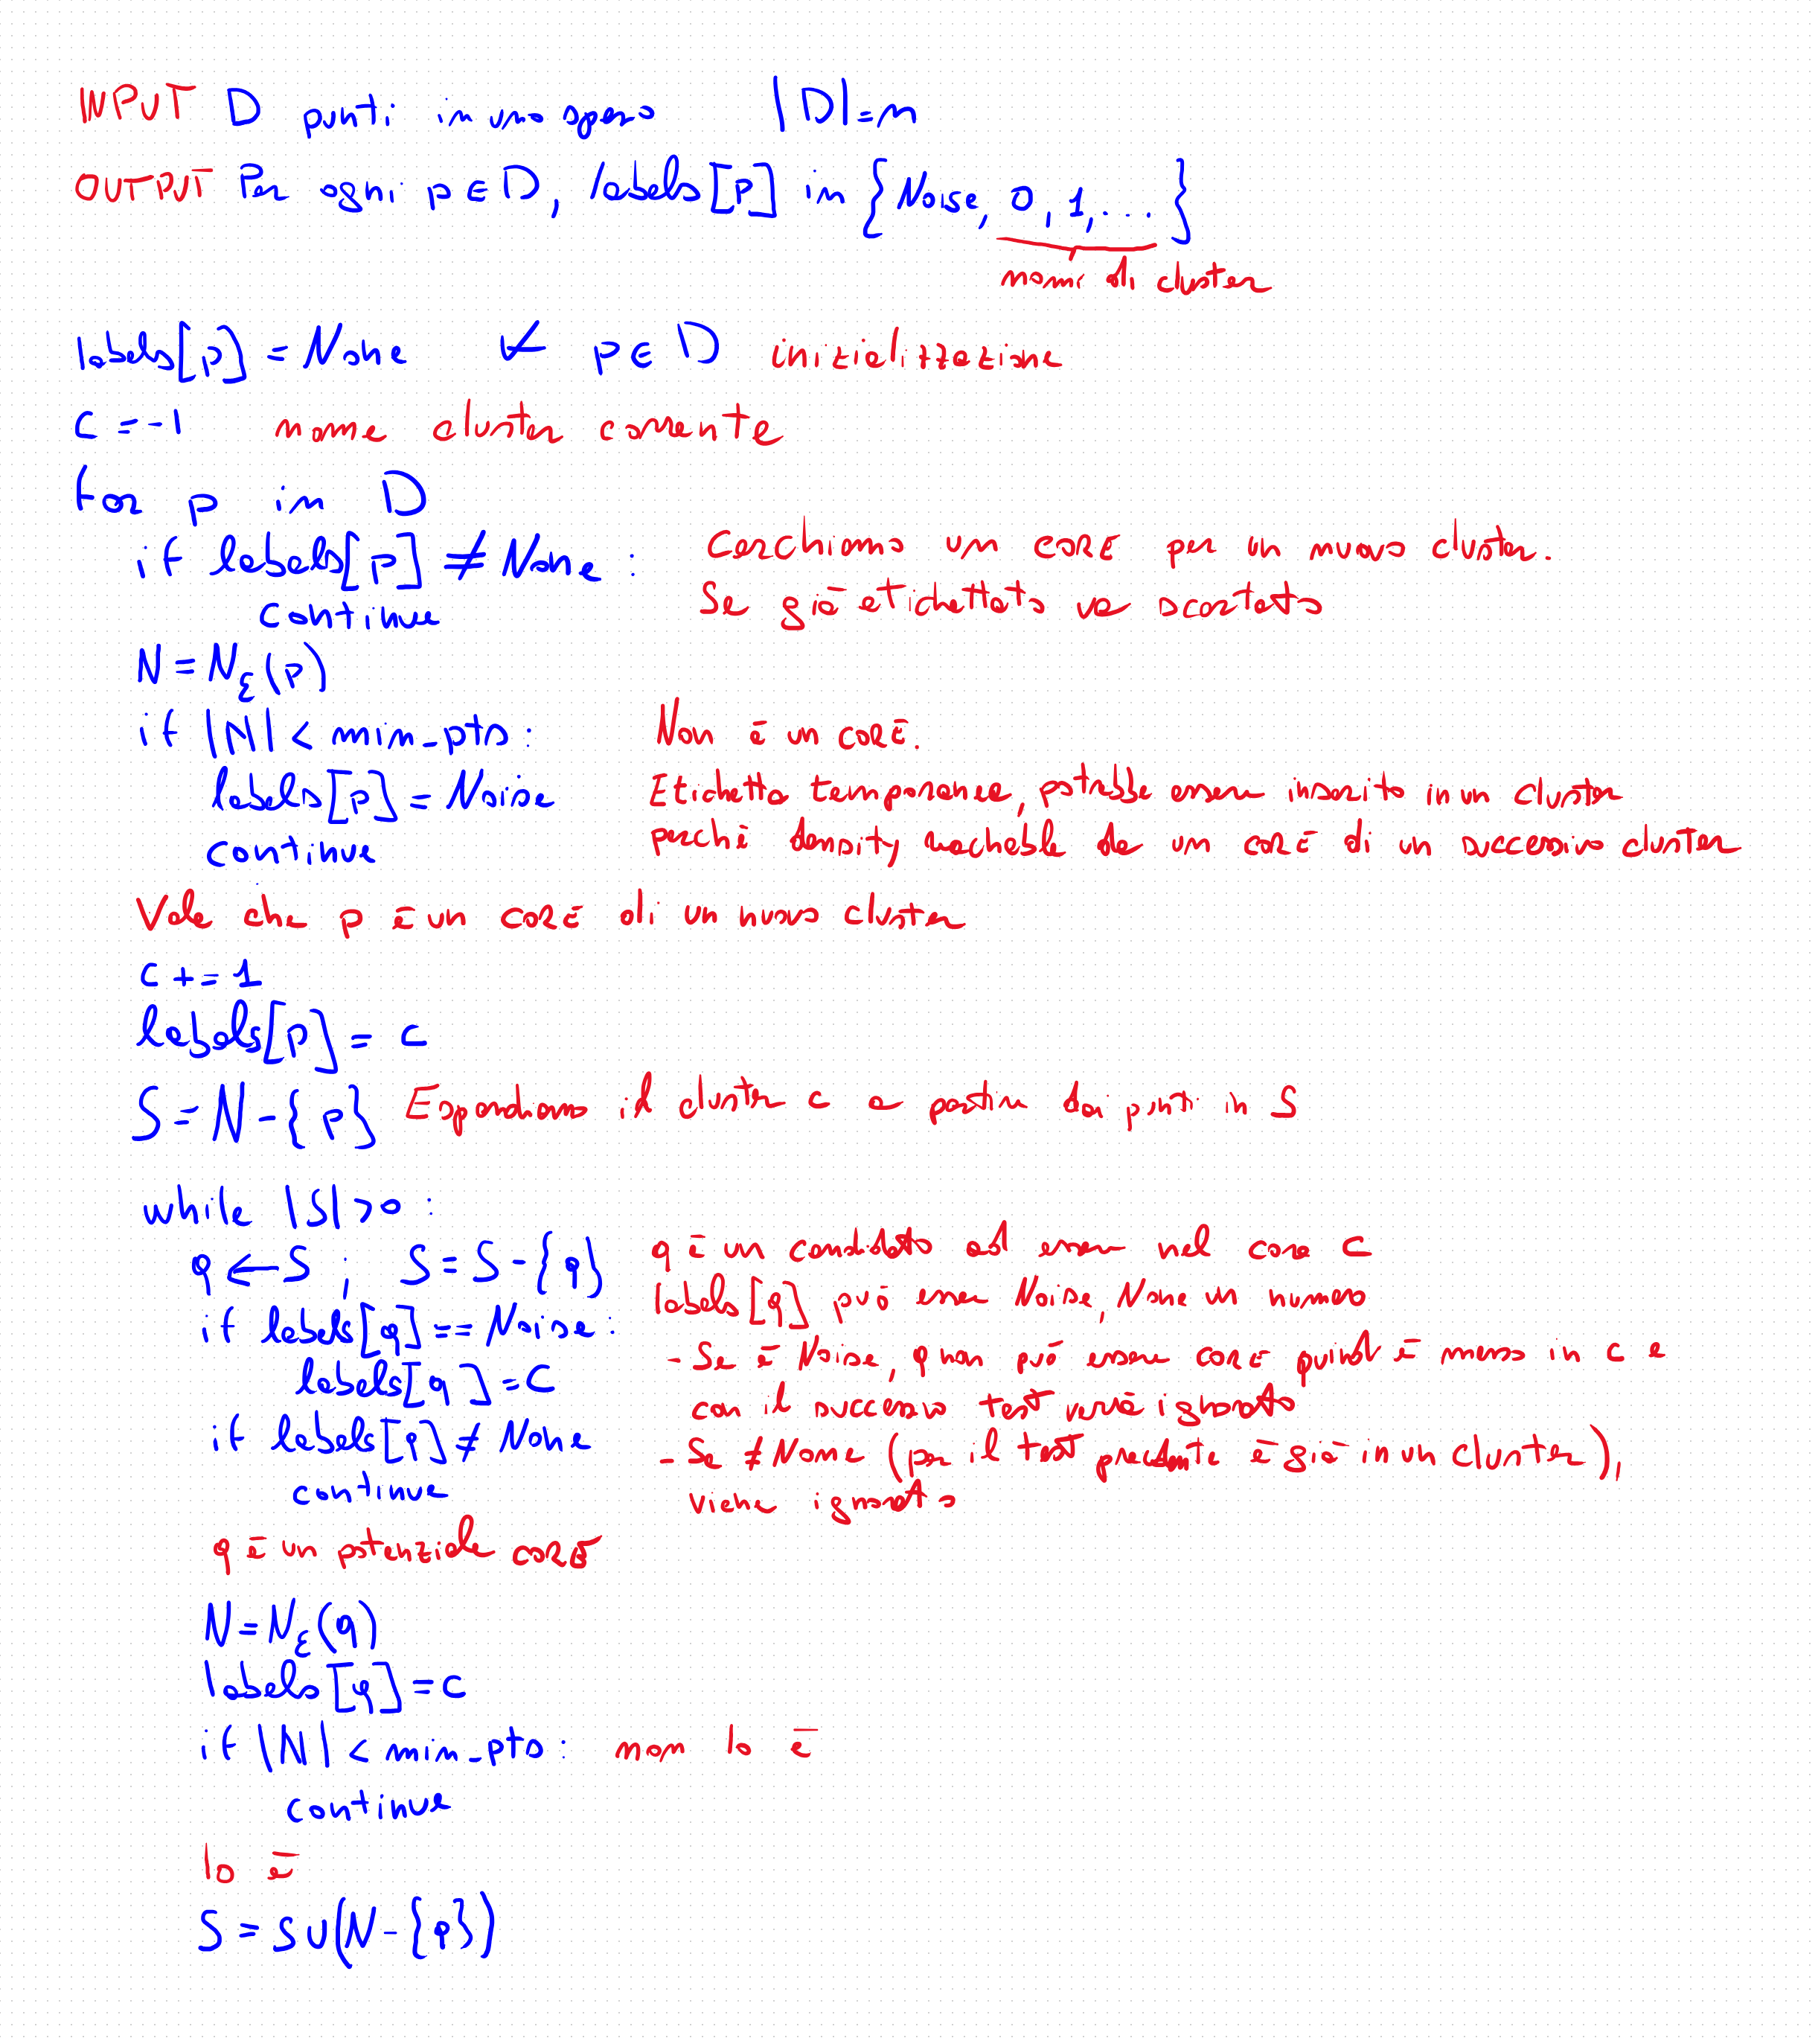 INPUT D punti in uno spazio |D|=n
OUTPUT Per ogni p ∈ D, labels[p] in {Noise, 0, 1, ...}
nomi di cluster
labels[p] = None ∀ p ∈ D inizializzazione
c = -1 nome cluster corrente
for p in D
if labels[p] ≠ None : Cerchiamo un CORE per un nuovo cluster.
continue Se già etichettato va scartato
N = Nε(p)
if |N| < min_pts : Non è un CORE.
labels[p] = Noise Etichetta temporanea, potrebbe essere inserito in un cluster
continue perché density reachable da un CORE di un successivo cluster
Vale che p è un CORE di un nuovo cluster
c += 1
labels[p] = c
S = N - {p} Espandiamo il cluster c a partire dai punti in S
while |S| > 0 :
q ← S ; S = S - {q} q è un candidato ad essere nel core C
labels[q] può essere Noise, None un numero
if labels[q] == Noise :
- Se è Noise, q non può essere CORE quindi è messo in c e
labels[q] = C
con il successivo test verrà ignorato
if labels[q] ≠ None
- Se ≠ None (per il test precedente è già in un cluster),
continue
viene ignorato
q è un potenziale CORE
N = Nε(q)
labels[q] = c
if |N| < min_pts : non lo è
continue
lo è
S = S ∪ (N - {q})